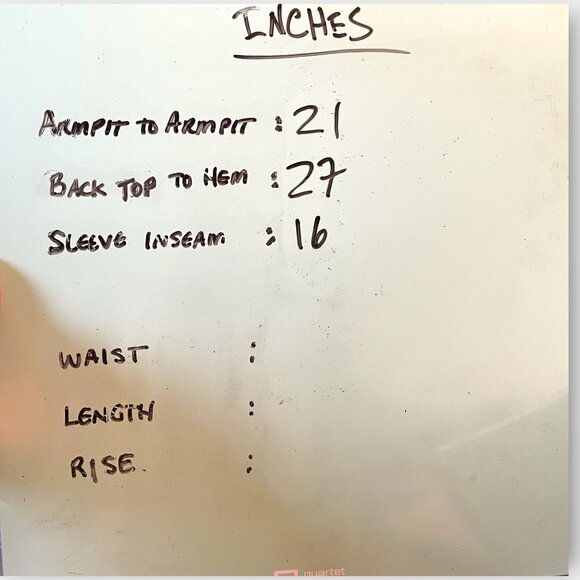 INCHES
ARMPIT TO ARMPIT : 21
BACK TOP TO HEM : 27
SLEEVE INSEAM : 16
WAIST :
LENGTH :
RISE. :
quartet